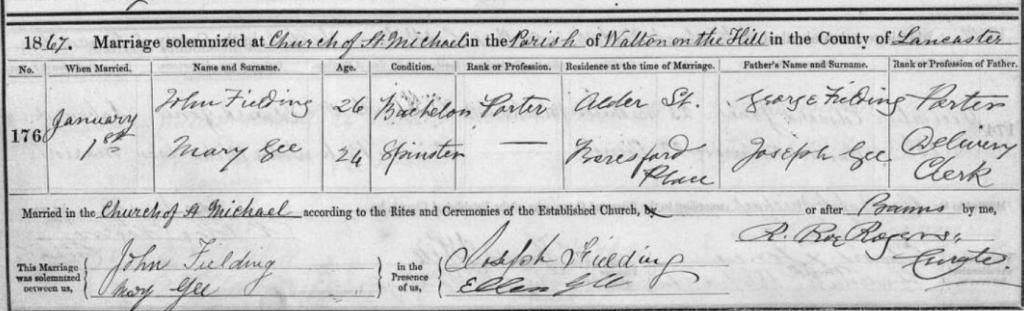 1867. Marriage solemnized at Church of St Michael in the Parish of Walton on the Hill in the County of Lancaster
No. When Married. Name and Surname. Age. Condition. Rank or Profession. Residence at the time of Marriage. Father's Name and Surname. Rank or Profession of Father.
176 January 1st John Fielding 26 Bachelor Porter Alder St. George Fielding Porter
Mary Gee 24 Spinster — Beresford Place Joseph Gee Delivery Clerk
Married in the Church of St Michael according to the Rites and Ceremonies of the Established Church, by or after Banns by me,
R. Roe Rogers, Curate.
This Marriage was solemnized between us, John Fielding Mary Gee in the Presence of us, Joseph Fielding Ellen Gee